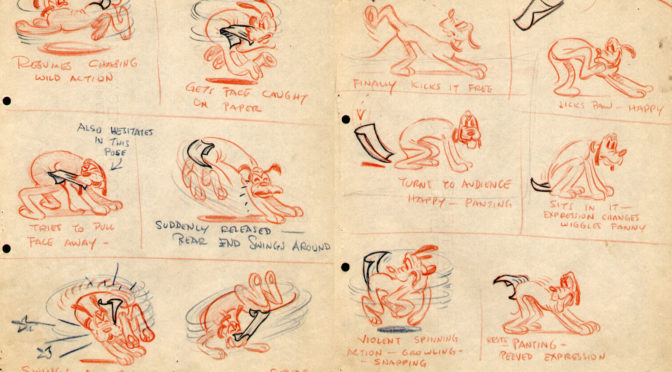 RESUMES CHASING
WILD ACTION
GETS FACE CAUGHT
ON PAPER
ALSO HESITATES
IN THIS
POSE
TRIES TO PULL
FACE AWAY -
SUDDENLY RELEASED -
REAR END SWINGS AROUND
FINALLY KICKS IT FREE
LICKS PAW - HAPPY
TURNS TO AUDIENCE
HAPPY - PANTING
SITS IN IT -
EXPRESSION CHANGES
WIGGLES FANNY
VIOLENT SPINNING
ACTION - GROWLING -
- SNAPPING
RESTS PANTING -
PEEVED EXPRESSION